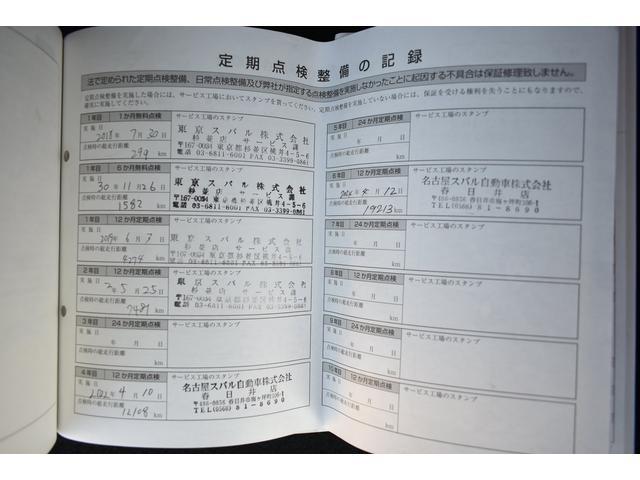 定期点検整備の記録
法で定められた定期点検整備、日常点検整備及び弊社が指定する点検整備を実施しなかったことに起因する不具合は保証修理致しません。
定期点検整備を実施した場合には、サービス工場においてスタンプを貰ってください。定期点検整備を実施していない場合には、保証を受ける権利を失うこともになりますので、
確実に実施してください。
1年目 1か月無料点検 サービス工場のスタンプ
実施日
2018年7月20日
点検時の総走行距離
299 km
東京スバル株式会社
杉並店 サービス課
〒167-0034 東京都杉並区桃井4-5-6
電話 03-6811-6001 FAX 03-3399-0861
1年目 6か月無料点検 サービス工場のスタンプ
実施日
30年11月26日
点検時の総走行距離
1582 km
東京スバル株式会社
杉並店 サービス課
〒167-0034 東京都杉並区桃井4-5-6
電話 03-6811-6001 FAX 03-3399-0861
1年目 12か月定期点検 サービス工場のスタンプ
実施日
2019年6月7日
点検時の総走行距離
4274 km
東京スバル株式会社
杉並店 サービス課
〒167-0034 東京都杉並区桃井4-5-6
電話 03-6811-6001 FAX 03-3399-0861
2年目 12か月定期点検 サービス工場のスタンプ
実施日
2年5月25日
点検時の総走行距離
7481 km
東京スバル株式会社
杉並店 サービス課
〒167-0034 東京都杉並区桃井4-5-6
電話 03-6811-6001 FAX 03-3399-0861
3年目 24か月定期点検 サービス工場のスタンプ
実施日
年 月 日
点検時の総走行距離
km
4年目 12か月定期点検 サービス工場のスタンプ
実施日
2022年4月10日
点検時の総走行距離
12108 km
名古屋スバル自動車株式会社
春日井店
〒486-0856 春日井市梅ヶ坪町106-1
TEL(0568)81-8690
5年目 24か月定期点検 サービス工場のスタンプ
実施日
年 月 日
点検時の総走行距離
km
6年目 12か月定期点検 サービス工場のスタンプ
実施日
年 月12日
点検時の総走行距離
19213 km
名古屋スバル自動車株式会社
春日井店
〒486-0856 春日井市梅ヶ坪町106-1
TEL(0568)81-8690
7年目 24か月定期点検 サービス工場のスタンプ
実施日
年 月 日
点検時の総走行距離
km
8年目 12か月定期点検 サービス工場のスタンプ
実施日
年 月 日
点検時の総走行距離
km
9年目 24か月定期点検 サービス工場のスタンプ
実施日
年 月 日
点検時の総走行距離
km
10年目 12か月定期点検 サービス工場のスタンプ
実施日
年 月 日
点検時の総走行距離
km